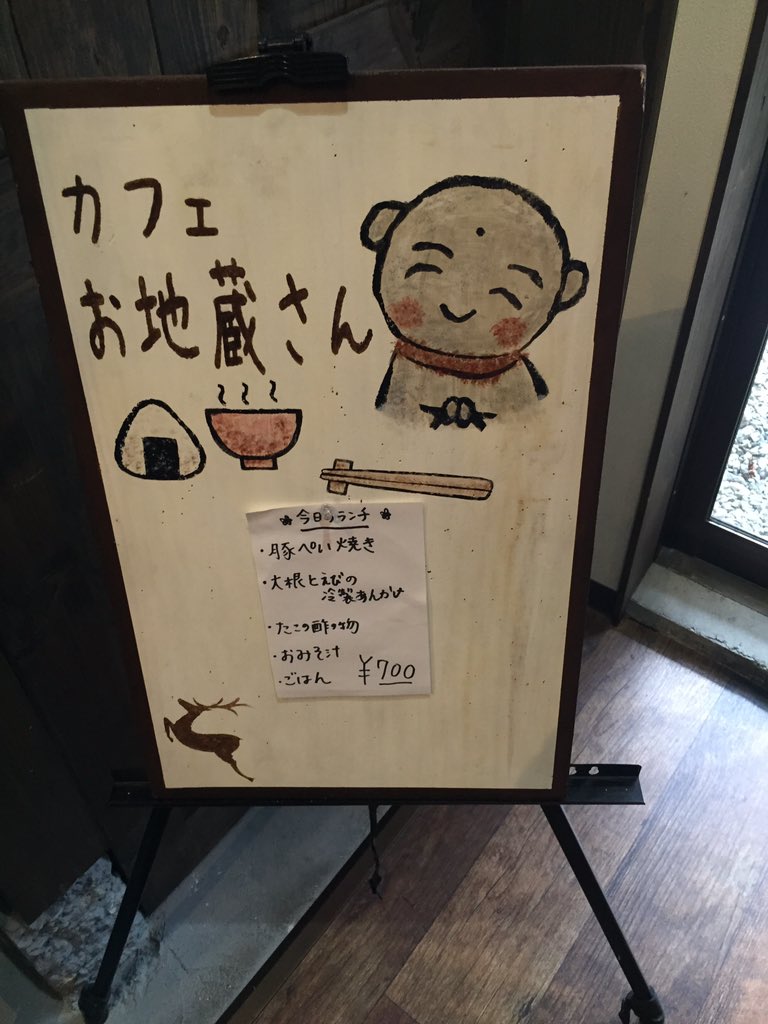 カフェ
お地蔵さん
今日のランチ
・豚ぺい焼き
・大根とえびの
冷製あんかけ
・たこの酢の物
・おみそ汁
・ごはん ¥700